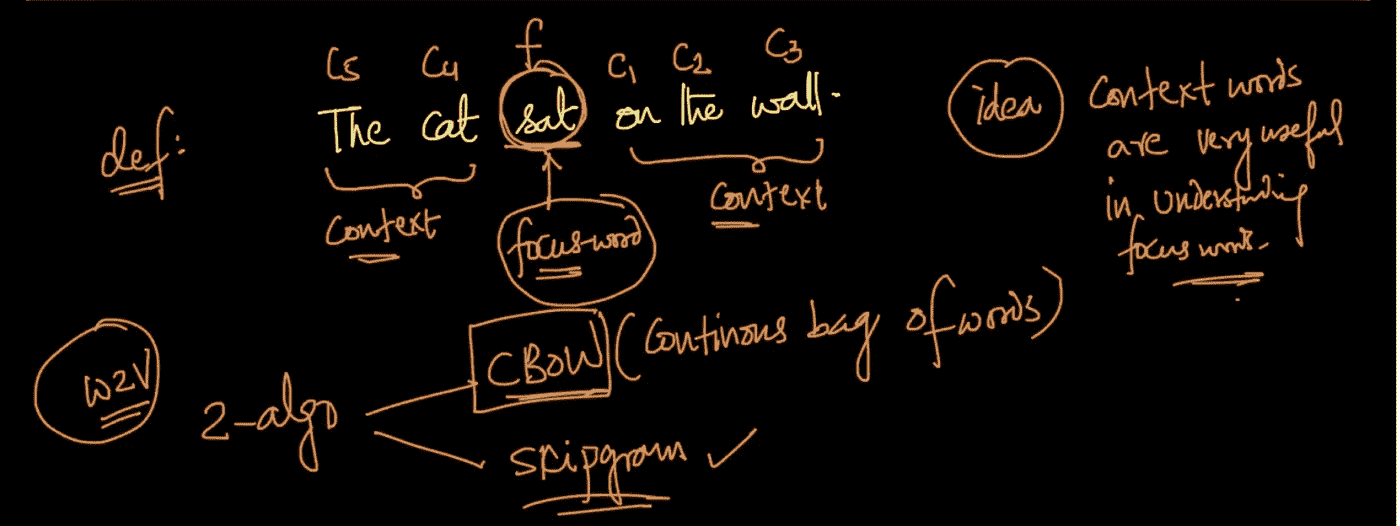 f
C5 C4 C1 C2 C3
def: The cat sat on the wall.
Context focus-word Context
idea Context words
are very useful
in understanding
focus word.
W2V 2-algo CBOW (Continous bag of words)
skipgram ✓